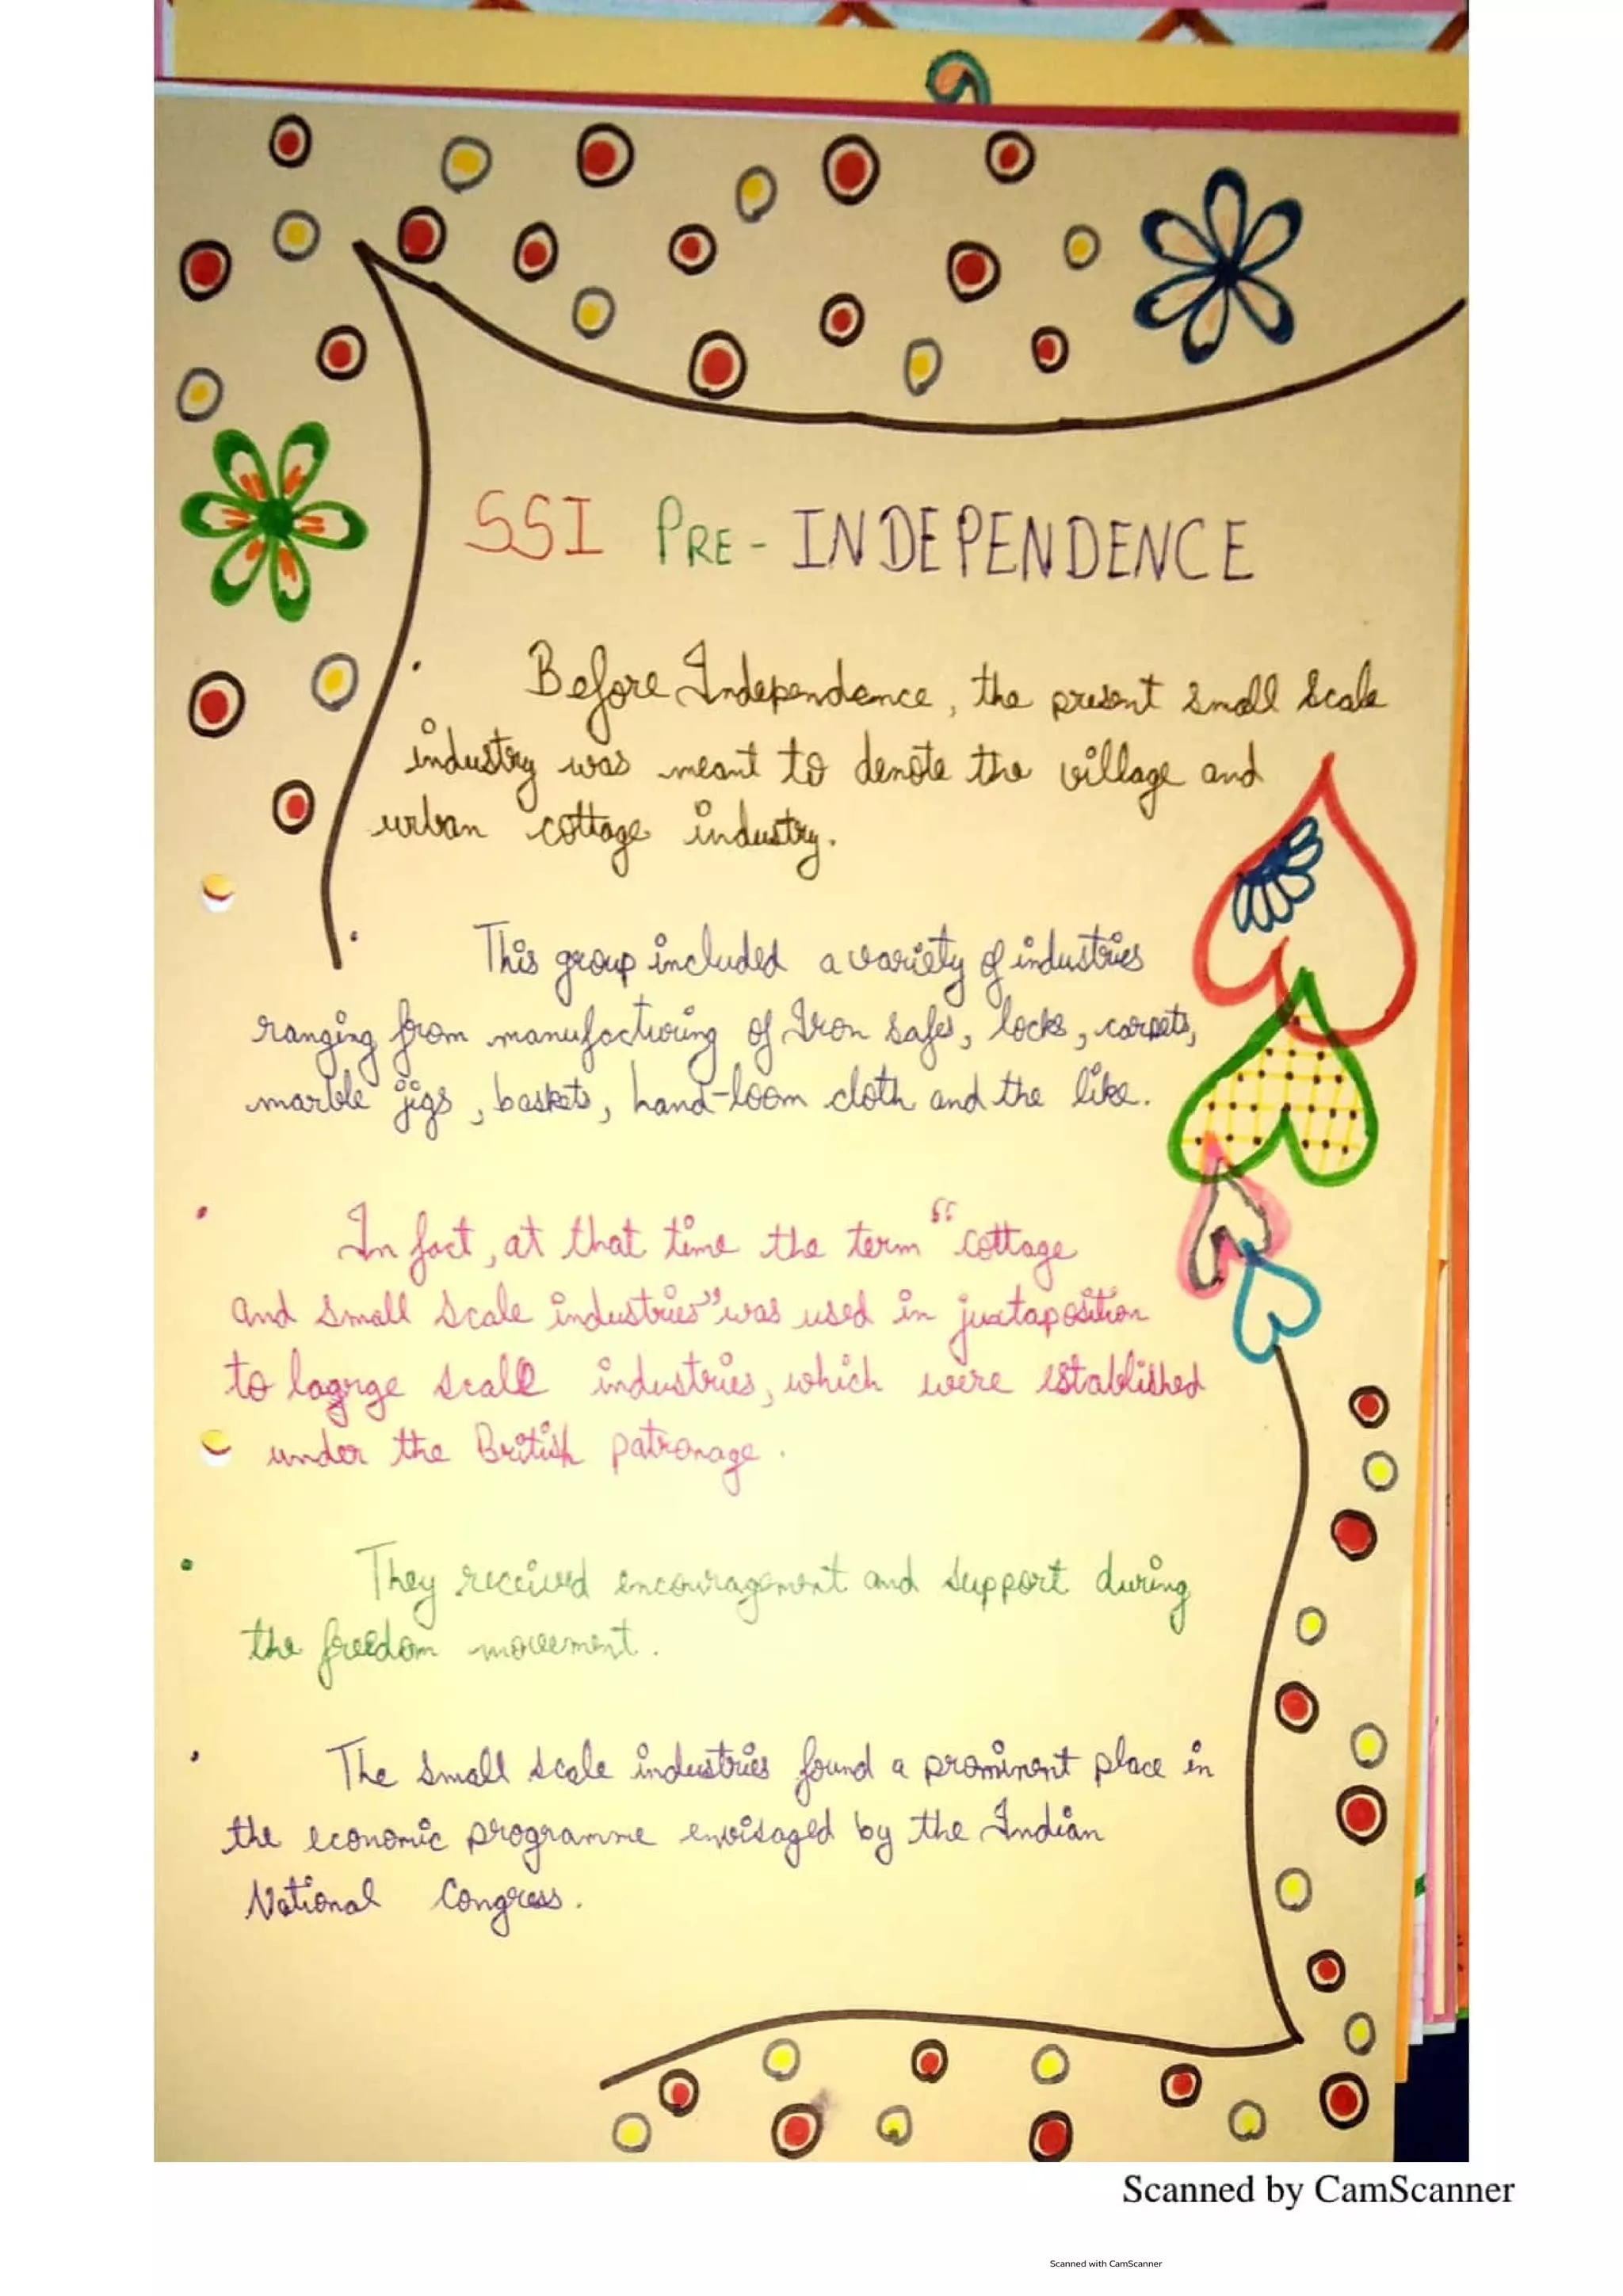 SSI PRE-INDEPENDENCE
• Before Independence, the present small scale
industry was meant to denote the village and
urban cottage industry.
• This group included a variety of industries
ranging from manufacturing of Iron safes, locks, carpets,
marble jigs, baskets, hand-loom cloth and the like.
• In fact, at that time the term "cottage
and small scale industries" was used in juxtaposition
to lagrge scale industries, which were established
under the British patronage.
• They received encouragement and support during
the freedom movement.
• The small scale industries found a prominent place in
the economic programme envisaged by the Indian
National Congress.
Scanned by CamScanner
Scanned with CamScanner